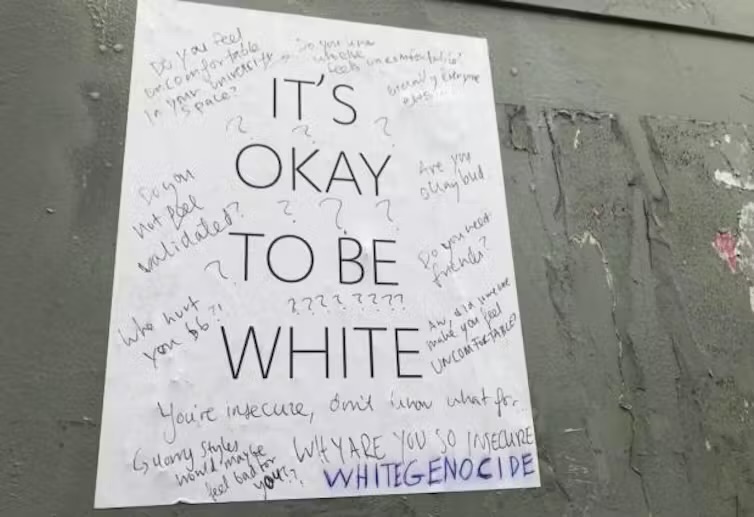 Do you feel
uncomfortable
in your university
space?
Do you
feels uncomfortable?
everyone
IT'S
? ? ?
OKAY
Are you
okay bud
Do you
not feel
validated?
? ? ?
TO BE
?
Do you need
friends?
????????
WHITE
Who hurt
you bb?!
Aw, did someone
make you feel
UNCOMFORTABLE?
You're insecure, don't know what for..
Styles
would maybe
feel bad for
you??
WHY ARE YOU SO INSECURE
WHITEGENOCIDE